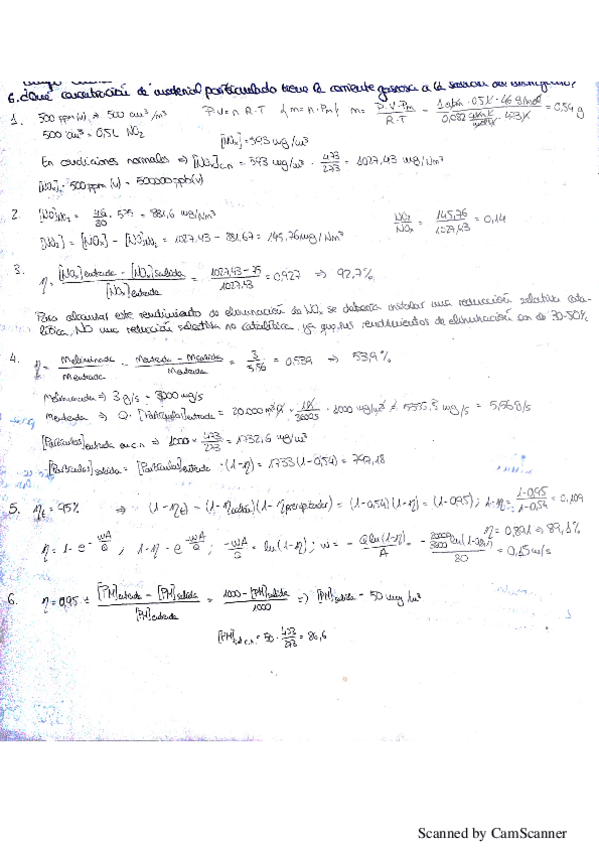 6. ¿Qué concentración de material particulado tiene la corriente gaseosa a la
1. 500 ppm(v) ⇒ 500 cm³/m³ P·V = n·R·T { m = n·Pm { m = P·V·Pm / R·T = 1 atm · 0,5 l · 46 g/mol / 0,082 · 473K = 0,54 g
500 cm³ = 0,5 L NO₂ [NOx] = 593 mg/m³
En condiciones normales ⇒ [NOx]c.n = 593 mg/m³ · 473/273 = 1027,43 mg/Nm³
[NOx] = 500 ppm (v) = 500000 ppb(v)
2. [NO]NO₂ = 46/30 · 575 = 881,6 mg/Nm³ NO₂/NOx = 145,76/1027,43 = 0,14
[NO₂] = [NOx] - [NO]NO₂ = 1027,43 - 881,67 = 145,76 mg/Nm³
3. η = [NOx]entrada - [NOx]salida / [NOx]entrada = 1027,43 - 75 / 1027,43 = 0,927 ⇒ 92,7%
Para alcanzar este rendimiento de eliminación de NOx se debería instalar una reducción selectiva cata-
lítica, NO una reducción selectiva no catalítica, ya que sus rendimientos de eliminación son de 30-50%
4. η = Meliminada / Mentrada = Mentrada - Msalida / Mentrada = 3/5,56 = 0,539 ⇒ 53,9%
Meliminada ⇒ 3 g/s = 3000 mg/s
Mentrada ⇒ Q · [Partículas]entrada = 20.000 m³/h · 1h/3600s · 1000 mg/m³ = 5555,5 mg/s = 5,56 g/s
[Partículas]entrada en c.n ⇒ 1000 · 473/273 = 1732,6 mg/m³
[Partículas]salida = [Partículas]entrada · (1-η) = 1733 (1-0,54) = 797,18
5. ηt = 95% ⇒ (1-ηt) = (1-ηciclón)(1-ηprecipitador) = (1-0,54)(1-η) = (1-0,95) ; 1-η = 1-0,95 / 1-0,54 = 0,109
η = 0,891 ⇒ 89,1%
η = 1 - e^(-wA/Q) ; 1-η = e^(-wA/Q) ; -wA/Q = ln(1-η) ; w = - Q ln(1-η) / A = = 0,15 m/s
6. η = 0,95 = [PM]entrada - [PM]salida / [PM]entrada = 1000 - [PM]salida / 1000 ⇒ [PM]salida = 50 mg/m³
[PM]s c.n. = 50 · 473/273 = 86,6
Scanned by CamScanner